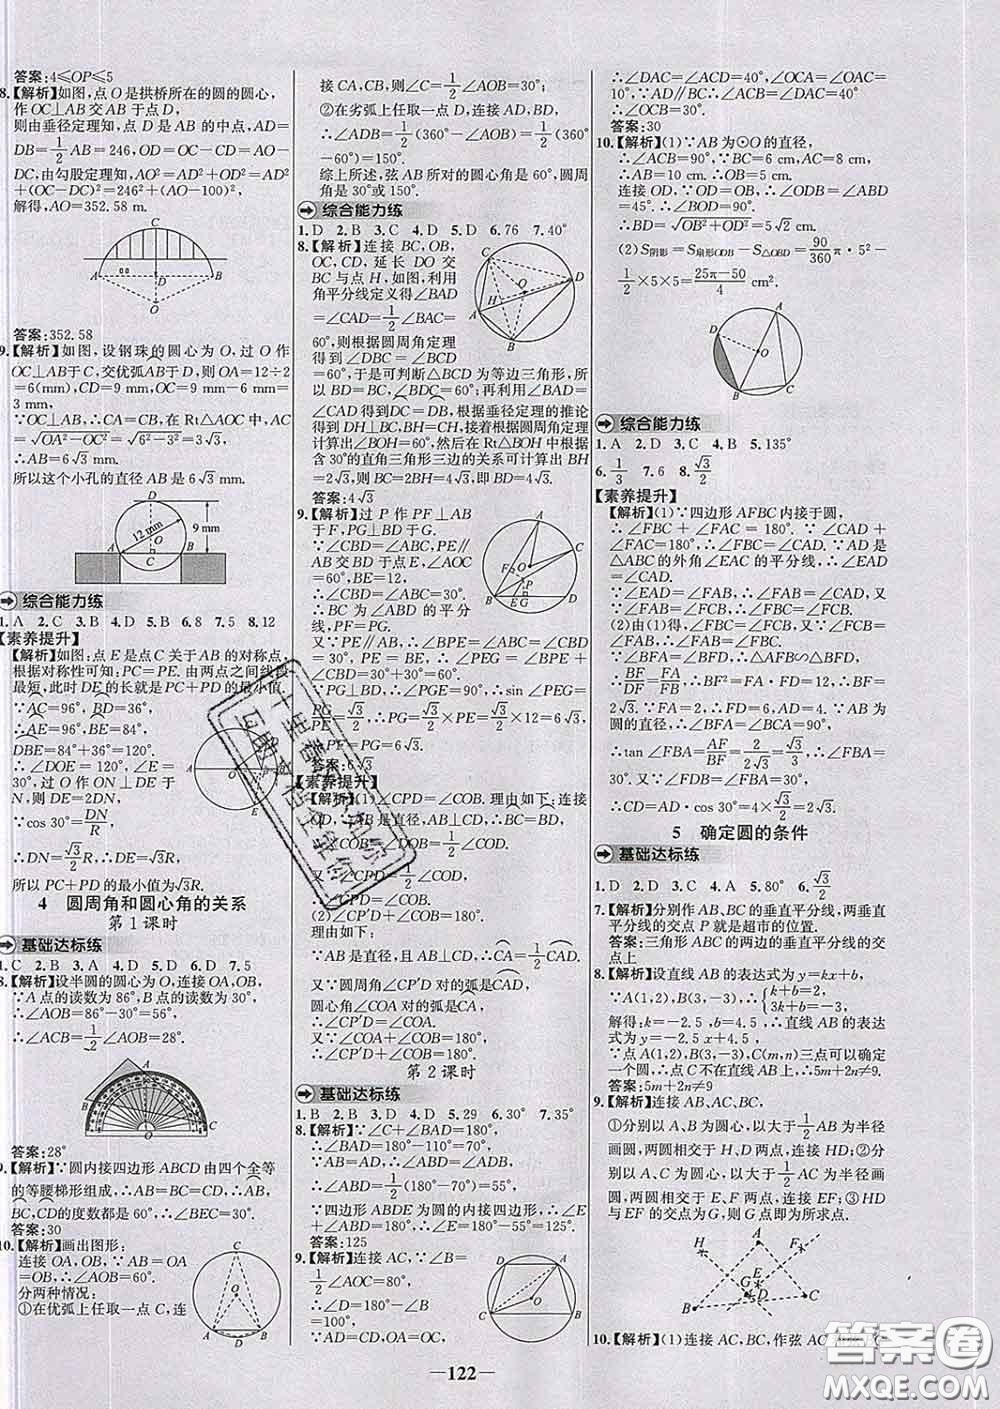 答案:4≤OP≤5
8.【解析】如图,点O是拱桥所在的圆的圆心,
作OC⊥AB交AB于点D,
则由垂径定理知,点D是AB的中点,AD=
DB=1/2AB=246,OD=OC-CD=AO-
DC,由勾股定理知,AO²=AD²+OD²=AD²
+(OC-DC)²=246²+(AO-100)²,
解得,AO=352.58 m.
C
A
D
B
O
答案:352.58
9.【解析】如图,设钢珠的圆心为O,过O作
OC⊥AB于C,交优弧AB于D,则OA=12÷2
=6(mm),CD=9 mm,OC=9 mm-6 mm=
3 mm,
∵OC⊥AB,∴CA=CB,在Rt△AOC中,AC
=√(OA²-OC²)=√(6²-3²)=3√3,
∴AB=6√3 mm.
所以这个小孔的直径AB是6√3 mm.
D
12 mm
O
9 mm
A
C
B
综合能力练
1.A 2.C 3.B 4.D 5.B 6.8 7.5 8.12
【素养提升】
【解析】如图:点E是点C关于AB的对称点,
根据对称性可知:PC=PE.由两点之间线段
最短,此时DE的长就是PC+PD的最小值.
∵AC=96°,BD=36°,
∴AE=96°,BE=84°,
DBE=84°+36°=120°,
∴∠DOE=120°,∠E=
30°,过O作ON⊥DE于
N,则DE=2DN,
∵cos 30°=DN/R,
∴DN=√3/2R,∴DE=√3R,
所以PC+PD的最小值为√3R.
4 圆周角和圆心角的关系
第1课时
基础达标练
1.C 2.B 3.A 4.D 5.D 6.D 7.5
8.【解析】设半圆的圆心为O,连接OA,OB,
∵A点的读数为86°,B点的读数为30°,
∴∠AOB=86°-30°=56°,
∴∠ACB=1/2∠AOB=28°.
答案:28°
9.【解析】∵圆内接四边形ABCD由四个全等
的等腰梯形组成,∴AB=BC=CD,∴AB,
BC,CD的度数都是60°,∴∠BEC=30°.
答案:30
10.【解析】画出图形:
连接OA,OB,∵AB=OA
=OB,∴∠AOB=60°.
分两种情况:
①在优弧上任取一点C,连
C
O
A
B
D
接CA,CB,则∠C=1/2∠AOB=30°;
②在劣弧上任取一点D,连接AD,BD,
∴∠ADB=1/2(360°-∠AOB)=1/2(360°
-60°)=150°.
综上所述,弦AB所对的圆心角是60°,圆周
角是30°或150°.
综合能力练
1.D 2.B 3.C 4.D 5.D 6.76 7.40°
8.【解析】连接BC,OB,
OC,CD,延长DO交
BC与点H,如图,利用
角平分线定义得∠BAD
=∠CAD=1/2∠BAC=
60°,则根据圆周角定理得
到∠DBC=∠BCD=
60°,于是可判断△BCD为等边三角形,所
以BD=BC,∠BDC=60°;再利用∠BAD=
∠CAD得到DC=DB,根据垂径定理的推论
得到DH⊥BC,BH=CH,接着根据圆周角定
理得到∠BOH=60°,然后在Rt△BOH中根据
含30°的直角三角形三边的关系可计算出BH
=2√3,所以BC=2BH=4√3,于是得到BD
=4√3.
答案:4√3
9.【解析】过P作PF⊥AB
于F,PG⊥BD于G.
∵∠CBD=∠ABC,PE∥
AB交BD于E,∠AOC
=60°,BE=12,
∴∠CBD=∠ABC=30°.
∴BP为∠ABD的平分
线,PF=PG.
又∵PE∥AB,∴∠BPE=∠ABC=
30°,又∵∠PEG=∠BPE+∠PBE=
∠CBD=30°+30°=60°.
∵PG⊥BD,∴∠PGE=90°,∴sin∠PEG=
√3/2,∴PG=√3/2×PE=√3/2×12=6√3,
∴PF=PG=6√3.
答案:6√3
【素养提升】
【解析】(1)∠CPD=∠COB.理由如下:连接
(2)∠CP'D+∠COB=180°.
理由如下:
∵AB是直径,且AB⊥CD,∴CA=1/2CD.
又∵圆周角∠CP'D对的弧是CAD,
圆心角∠COA对的弧是CA,
∴∠CP'D=∠COA.
又∵∠COA+∠COB=180°,
∴∠CP'D+∠COB=180°.
第2课时
基础达标练
1.B 2.B 3.D 4.D 5.29 6.30° 7.35°
8.【解析】∵∠C+∠BAD=180°,
∴∠BAD=180°-110°=70°,
∵AB=AD,
∴∠ABD=1/2(180°-∠BAD)=55°,
∵四边形ABDE为圆的内接四边形,∴∠E+
∠ABD=180°,∴∠E=180°-55°=125°.
答案:125
9.【解析】连接AC,∵∠B=
1/2∠AOC=80°,
∴∠D=180°-∠B
=100°.
又∵AD=DC,
∴∠DAC=∠ACD=40°,∴∠OAC=
∠DAC=40°,
∵AD∥BC,∴∠OCA=∠OAC=40°,
∴∠OCB=30°.
答案:30
10.【解析】(1)∵AB为⊙O的直径,
∴∠ACB=90°,∵BC=6 cm,AC=8 cm,
∴AB=10 cm.∴OB=5 cm.
连接OD,∵OD=OB,∴∠ODB=∠ABD
=45°.∴∠BOD=90°.
∴BD=√(OB²+OD²)=5√2 cm.
(2)S阴影=S扇形ODB-S△OBD=90/360π·5²-
1/2×5×5=(25π-50)/4 cm².
D
A
O
B
C
综合能力练
1.A 2.D 3.C 4.B 5.135°
6.1/3 7.6 8.√3/2
【素养提升】
【解析】(1)∵四边形AFBC内接于圆,
∴∠FBC+∠FAC=180°.∵∠CAD+
∠FAC=180°,∴∠FBC=∠CAD.∵AD是
△ABC的外角∠EAC的平分线,∴∠EAD=
∠CAD.
∵∠EAD=∠FAB,∴∠FAB=∠CAD.
又∵∠FAB=∠FCB,∴∠FBC=∠FCB.
(2)由(1)得∠FBC=∠FCB,
又∵∠FCB=∠FAB,∴∠FAB=∠FBC,
∵∠BFA=∠BFD,∴△AFB∽△BFD,
∴BF/FD=FA/FB,∴BF²=FA·FD=12,∴BF=
2√3.∵FA=2,∴FD=6,AD=4.∵AB为
圆的直径,∴∠BFA=∠BCA=90°,
∴tan∠FBA=AF/BF=2/2√3=√3/3,∴∠FBA=30°.
∴CD=AD·cos 30°=4×√3/2=2√3.
5 确定圆的条件
基础达标练
1.D 2.D 3.A 4.D 5.80° 6.√3/2
7.【解析】分别作AB,BC的垂直平分线,两垂直
平分线的交点P就是超市的位置.
答案:三角形ABC的两边的垂直平分线的交
点上
8.【解析】设直线AB的表达式为y=kx+b,
∵A(1,2),B(3,-3),∴{k+b=2, k+b=-3,
解得:k=-2.5,b=4.5,∴直线AB的表达
式为y=-2.5x+4.5,
∵点A(1,2),B(3,-3),C(m,n)三点可以确定
一个圆,∴点C不在直线AB上,∴5m+2n≠9.
答案:5m+2n≠9
9.【解析】连接AB,AC,
①分别以A、B为圆心,以大于1/2AB为半径
画圆,两圆相交于H、D两点,连接HD;②分
别以A、C为圆心,以大于1/2AC为半径画
圆,两圆相交于E、F两点,连接EF;③HD
与EF的交点为G,则G点即为所求点.
10.【解析】(1)连接AC,BC,作弦AC
122
答案圈
MXQE.COM